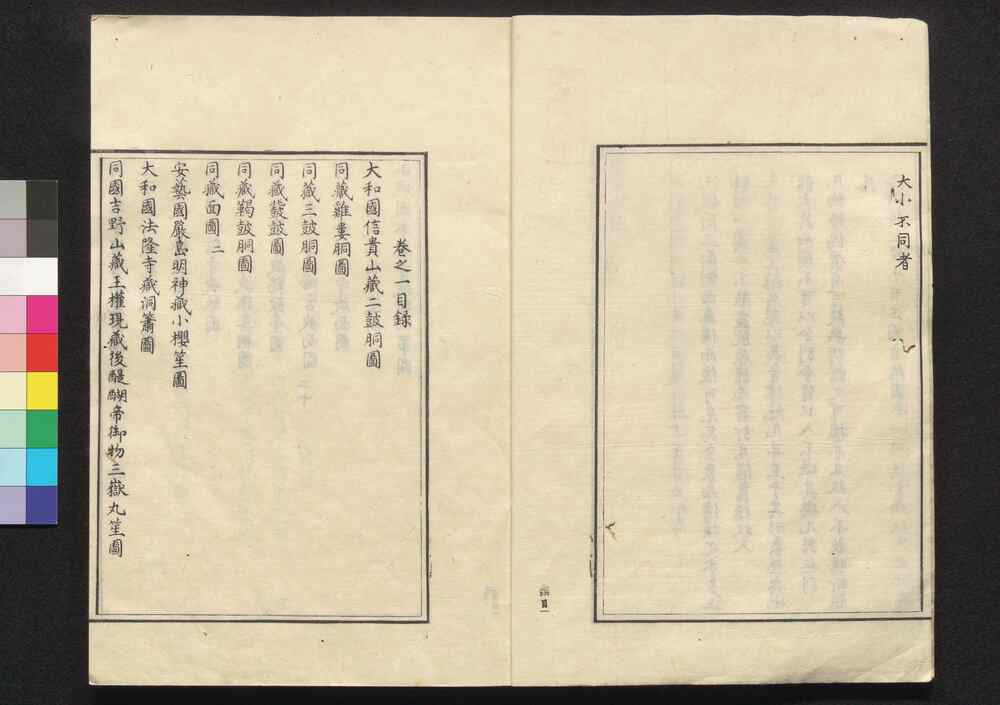 大小不同者
卷之一目録
大和國信貴山藏二鼓胴圖
同藏雞婁胴圖
同藏三鼓胴圖
同藏鼗鼓圖
同藏鞨鼓胴圖
同藏面圖二
安藝國嚴島明神藏小櫻笙圖
大和國法隆寺藏洞簫圖
同國吉野山藏王權現藏後醍醐帝御物三嶽丸笙圖